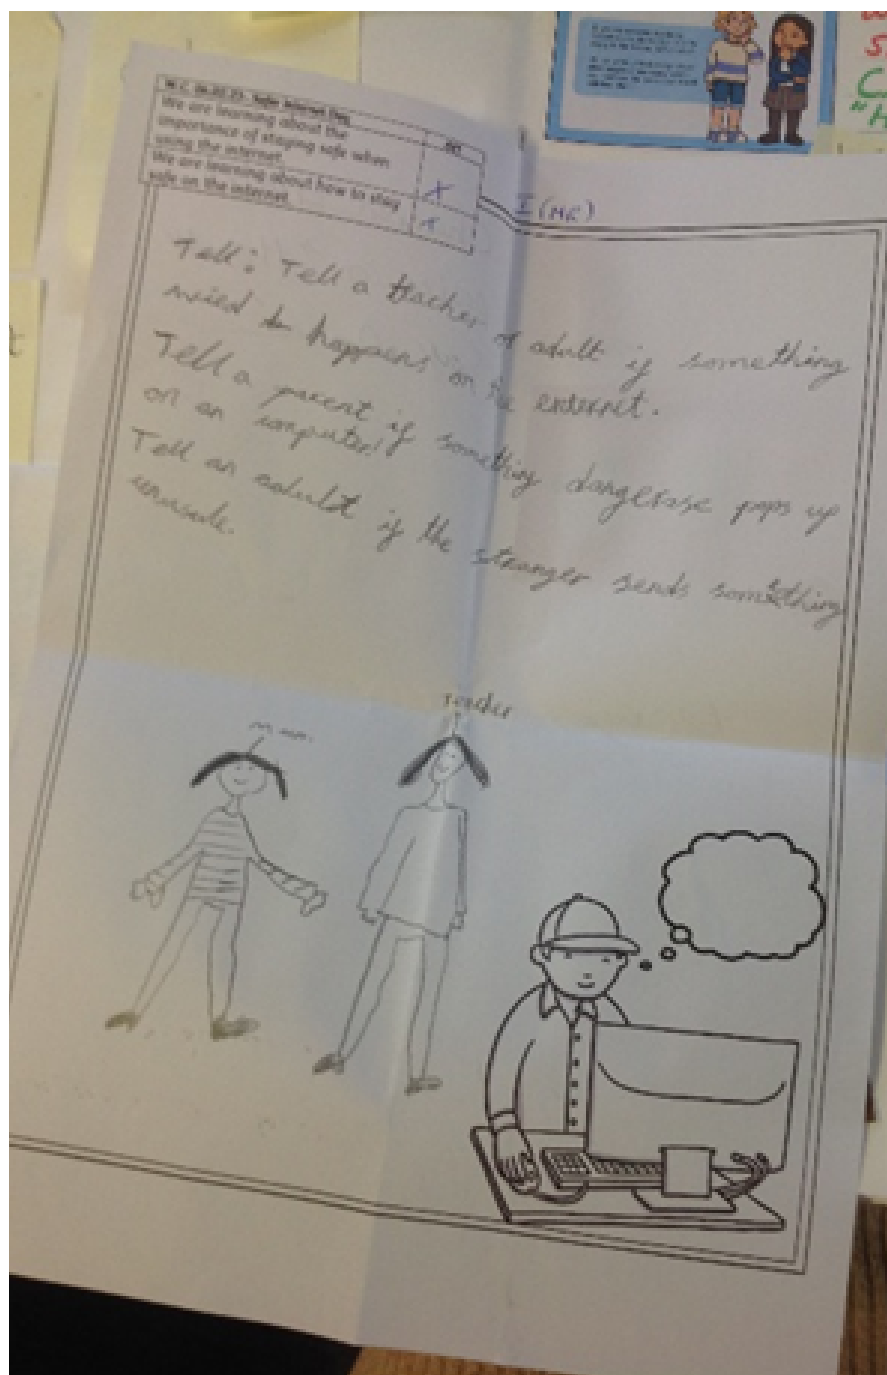 W.C. 06.02.23- Safer Internet Day
We are learning about the
importance of staying safe when
using the internet.
We are learning about how to stay
safe on the internet.
I (MR)
Tell: Tell a teacher of adult if something
wried to happens on the externet.
Tell a parent if something dangerase pops up
on an computer!
Tell an adult if the stranger sends something
unasde.
mum